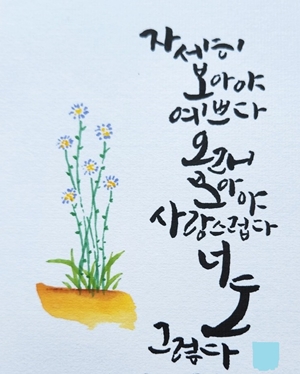 자세히
보아야
예쁘다
오래
보아야
사랑스럽다
너
도
그렇다